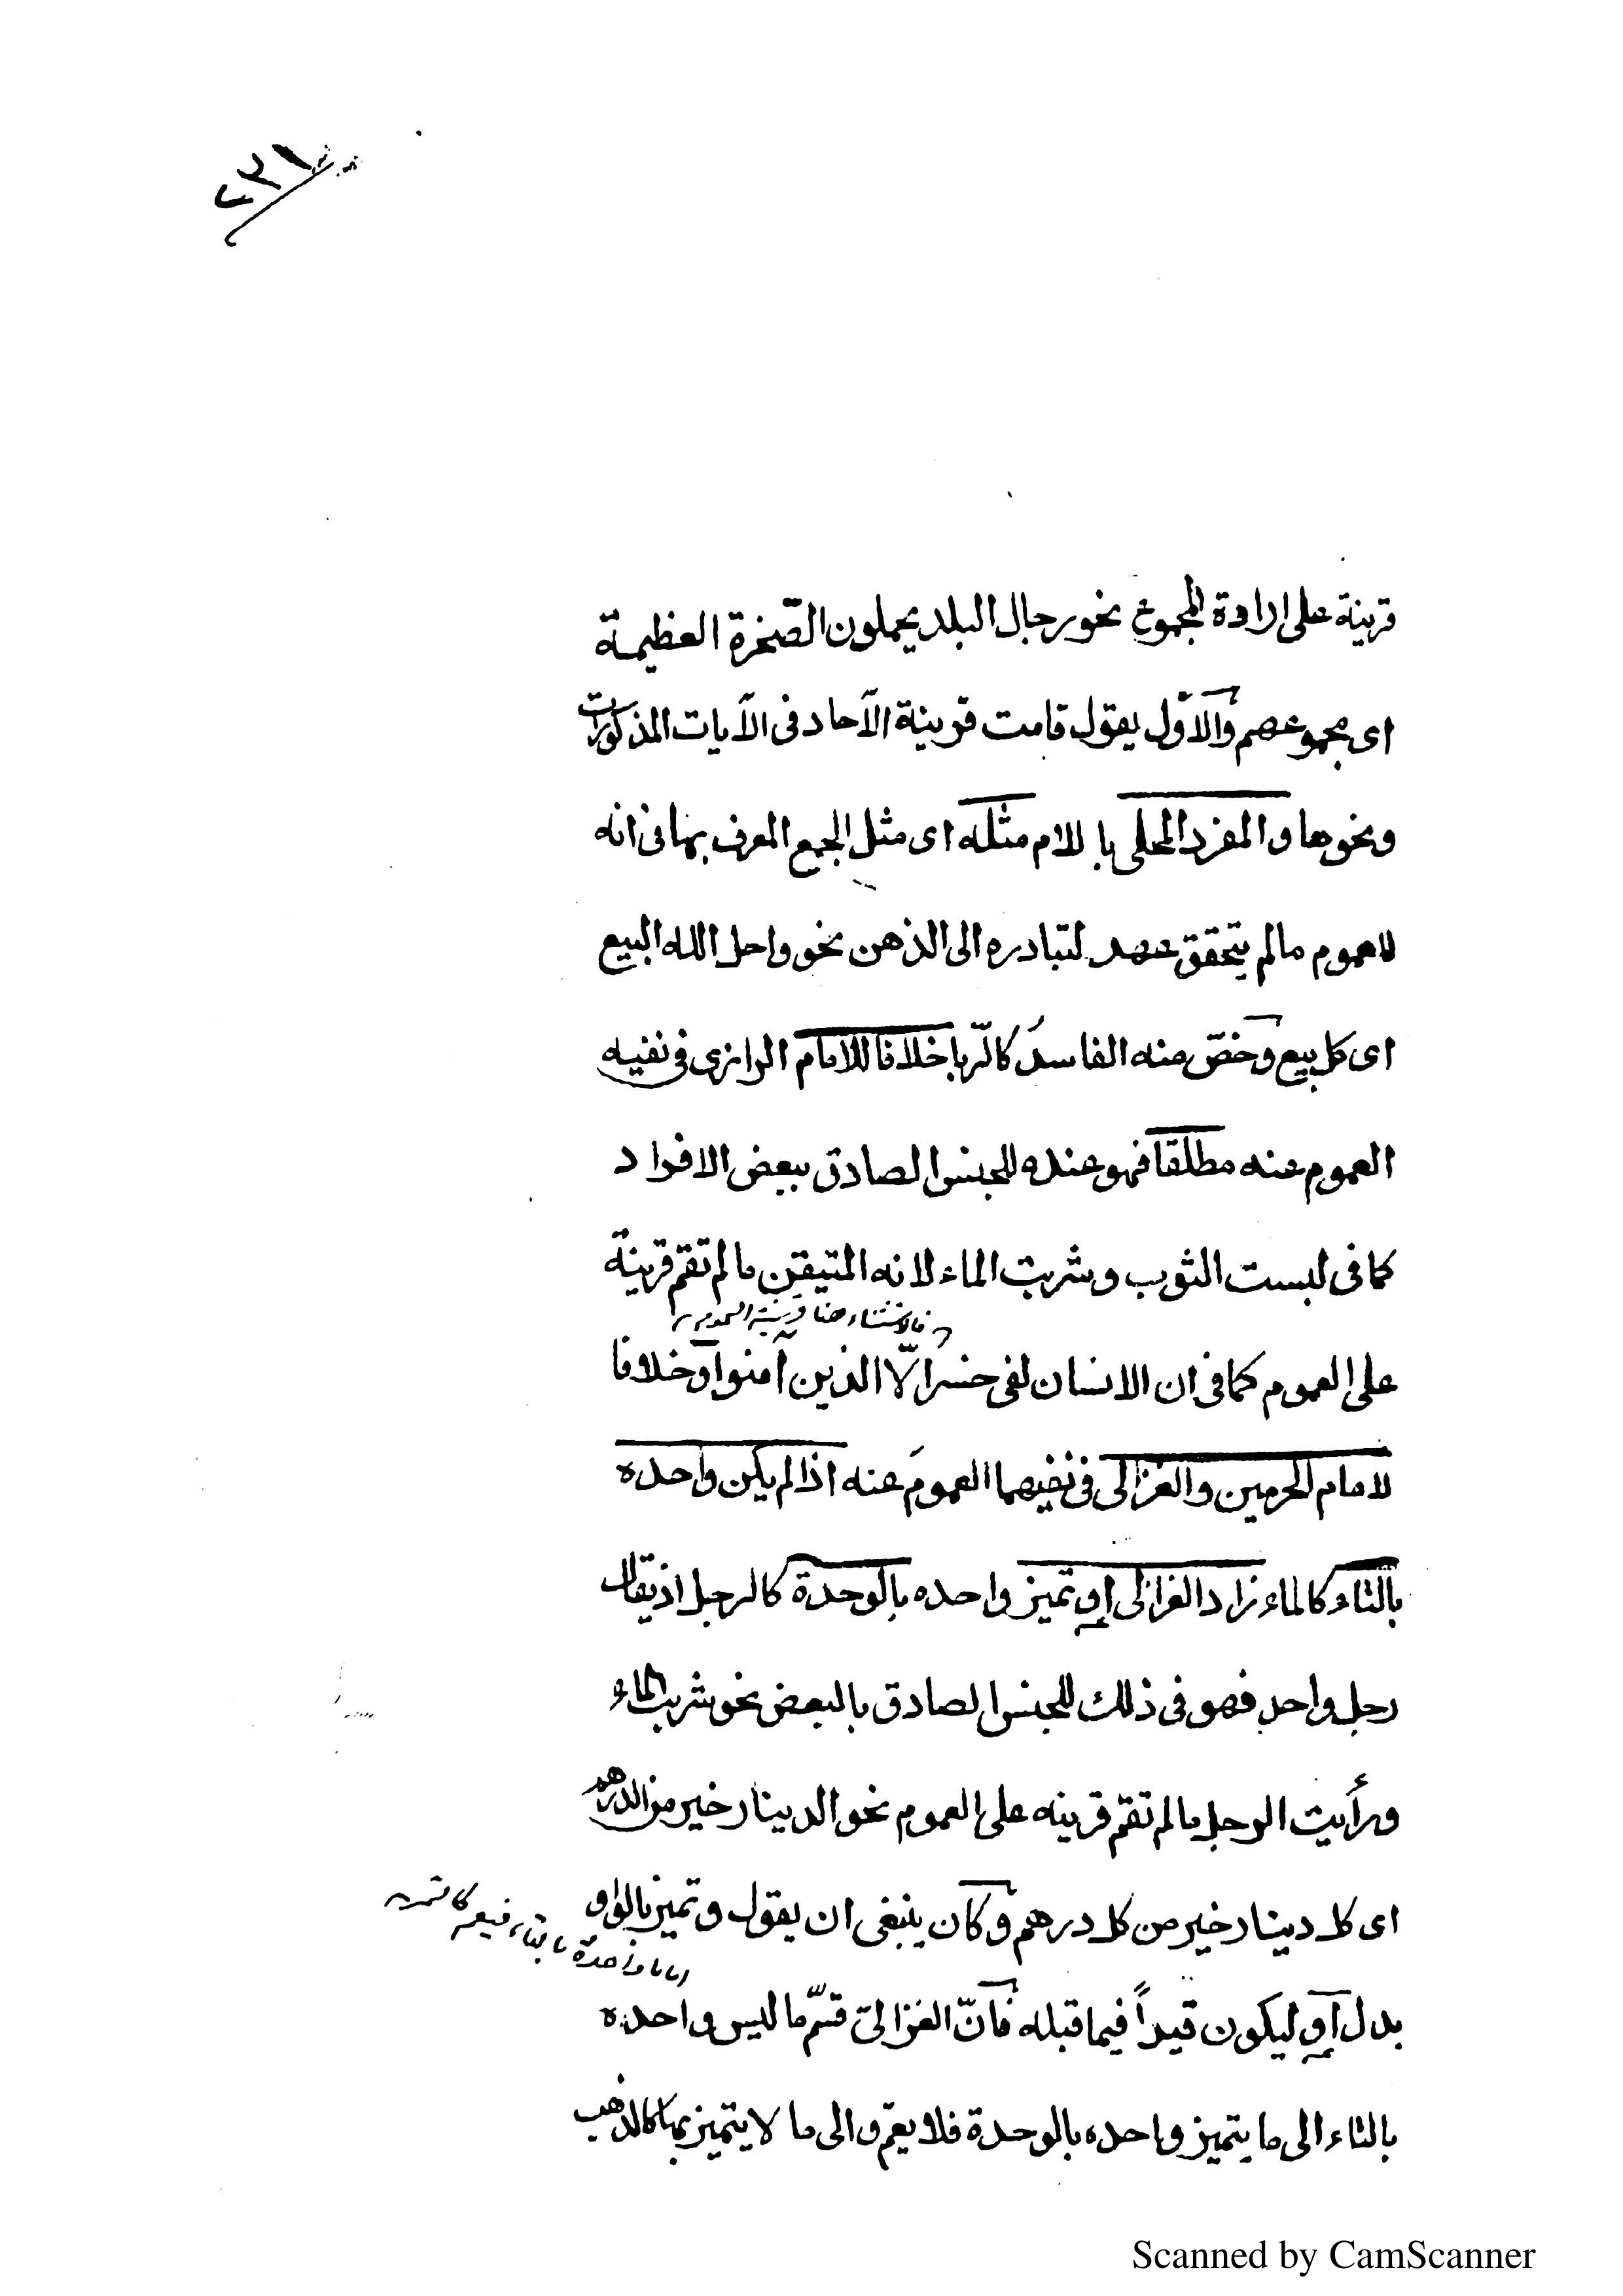 ٢٣١
قرينة على ارادة المجموع نحو رجال البلد يحملون الصّخرة العظيمة
اى مجموعهم والاوّل يقول قامت قرينة الآحاد فى الآيات المذكورات
ونحوها والمفرد المحلى باللام مثله اى مثل الجمع المعرف بها فى انه
للعموم مالم يتحقق عهد لتبادره الى الذهن نحو واحل الله البيع
اى كل بيع وخصّ منه الفاسدُ كالرّبا خلافا للامام الرازى فى نفيه
العموم عنه مطلقا فهو عنده للجنس الصادق ببعض الافراد
كما فى لبست الثوب وشربت الماء لانه المتيقن ما لم تقم قرينة
فالاستثناء هنا قرينة العموم
على العموم كما فى ان الانسان لفى خسر الّا الذين آمنوا وخلافا
لامام الحرمين والغزالى فى نفيهما العمومَ عنه اذا لم يكن واحده
بالتاء كالماء زاد الغزالى او تميز واحده بالوحدة كالرجل اذ يقال
رجل واحد فهو فى ذلك للجنس الصادق بالبعض نحو شربت الماء
ورأيت الرجل ما لم تقم قرينه على العموم نحو الدينار خير من الدرهم
اى كل دينار خير من كل درهم وكان ينبغى ان يقول وتميز بالواو
اما ما واحدة بالتاء فيعم كالتمر
بدل او ليكون قيداً فيما قبله فانّ الغزالىّ قسّم ما ليس واحده
بالتاء الى ما يتميز واحده بالوحدة فلا يعمّ والى ما لا يتميز بها كالذهب
Scanned by CamScanner